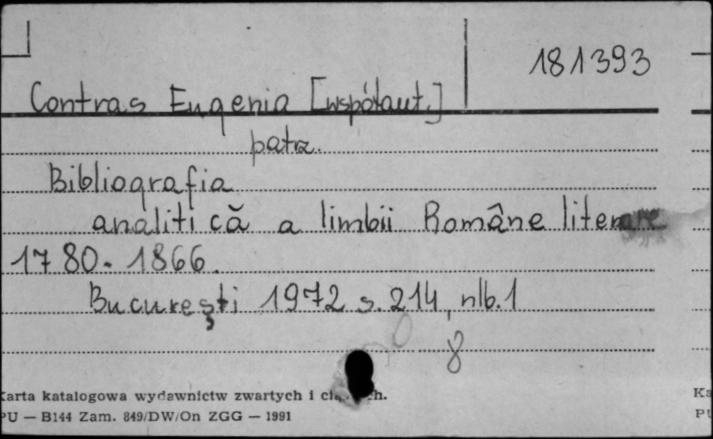 181393
Contras Eugenia [współaut.]
patrz.
Bibliografia
analitică a limbii Române literare
1780-1866.
Bucureşti 1972 s. 214, nlb. 1
8
Karta katalogowa wydawnictw zwartych i
PU — B144 Zam. 849/DW/On ZGG — 1991